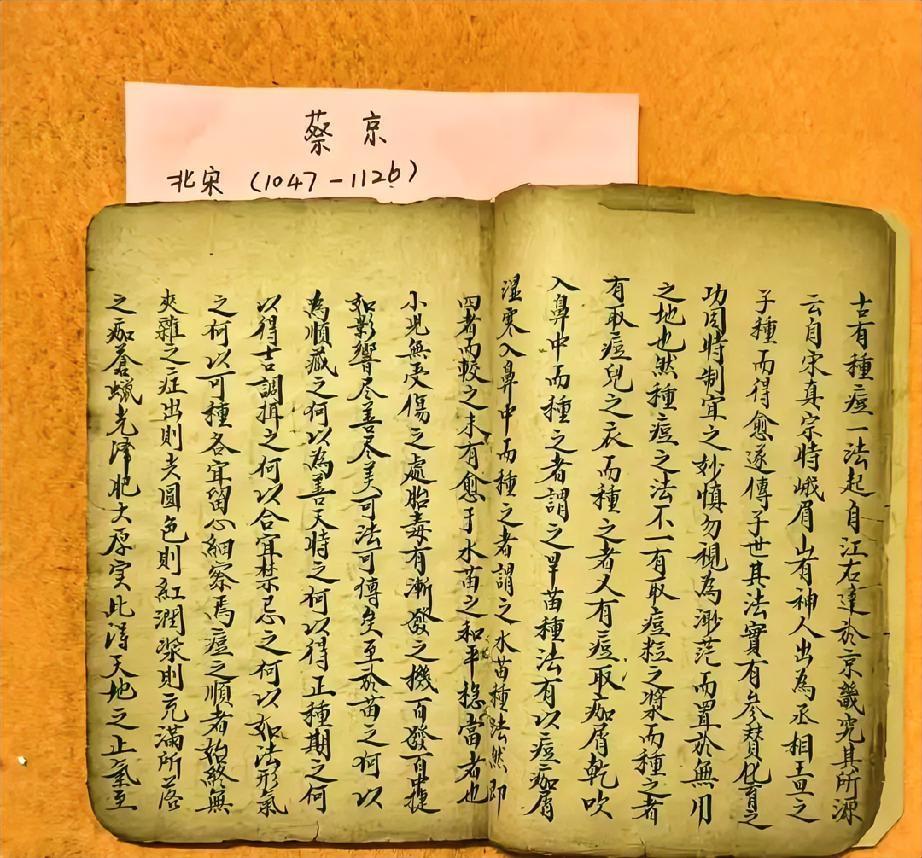 蔡京
北宋 (1047-1126)
古有種痘一法起自江右達於京畿究其所源
云自宋真宗時峨眉山有神人出為丞相王旦之
子種而得愈遂傳于世其法實有參贊化育之
功因時制宜之妙慎勿視為渺茫而置於無用
之地也然種痘之法不一有取痘粒之漿而種之者
有取痘兒之衣而種之者又有痘取痂屑乾吹
入鼻中而種之者謂之旱苗種法有以痘痂屑
濕棗入鼻中而種之者謂之水苗種法然即
四者而較之未有愈于水苗之和平穩當者也
小児無受傷之處胎毒有漸發之機百發百捷
如影響尽善尽美可法可傳矣至於苗之何以
為順藏之何以為善天時之何以得正種期之何
以得吉調揖之何以合宜禁忌之何以如法形氣
之何以可種各宜留心細察焉痘之順者始終無
夾雜之症出則尖圓色則紅潤漿則充滿所落
之痂蒼蠟光澤肥大厚実此得天地之正氣至